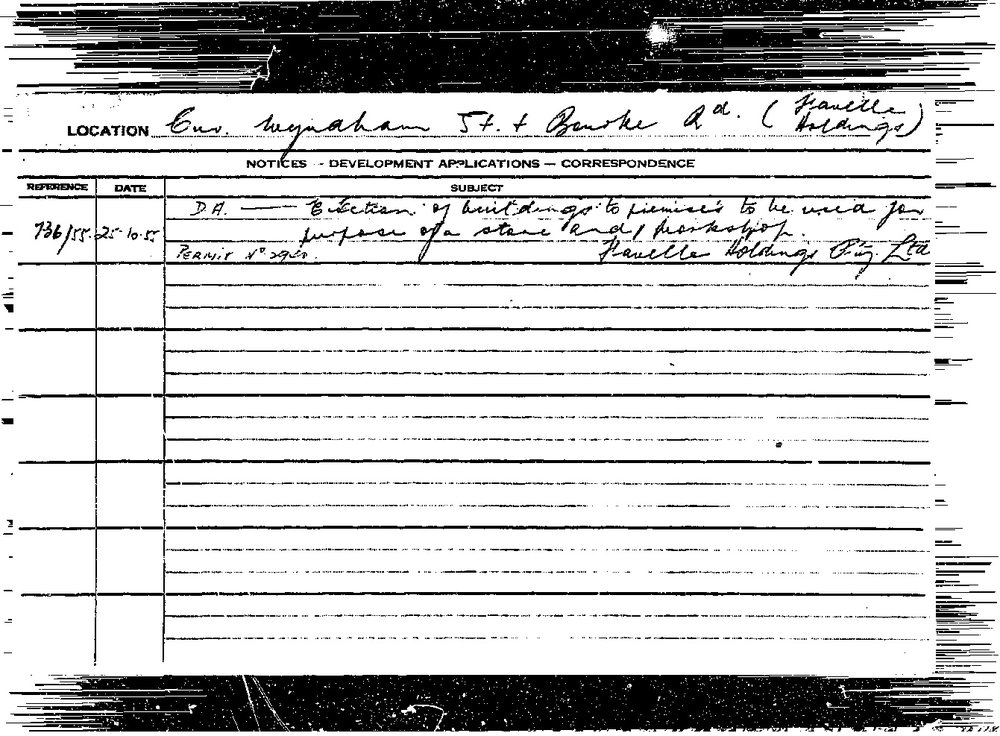 LOCATION Cnr. Wyndham St. + Bourke Rd. (Favelle Holdings)
NOTICES - DEVELOPMENT APPLICATIONS — CORRESPONDENCE
REFERENCE DATE SUBJECT
D.A. — Erection of buildings to premises to be used for
736/55 25-10-55 purpose of a store and / workshop.
PERMIT Nº Favelle Holdings Pty. Ltd